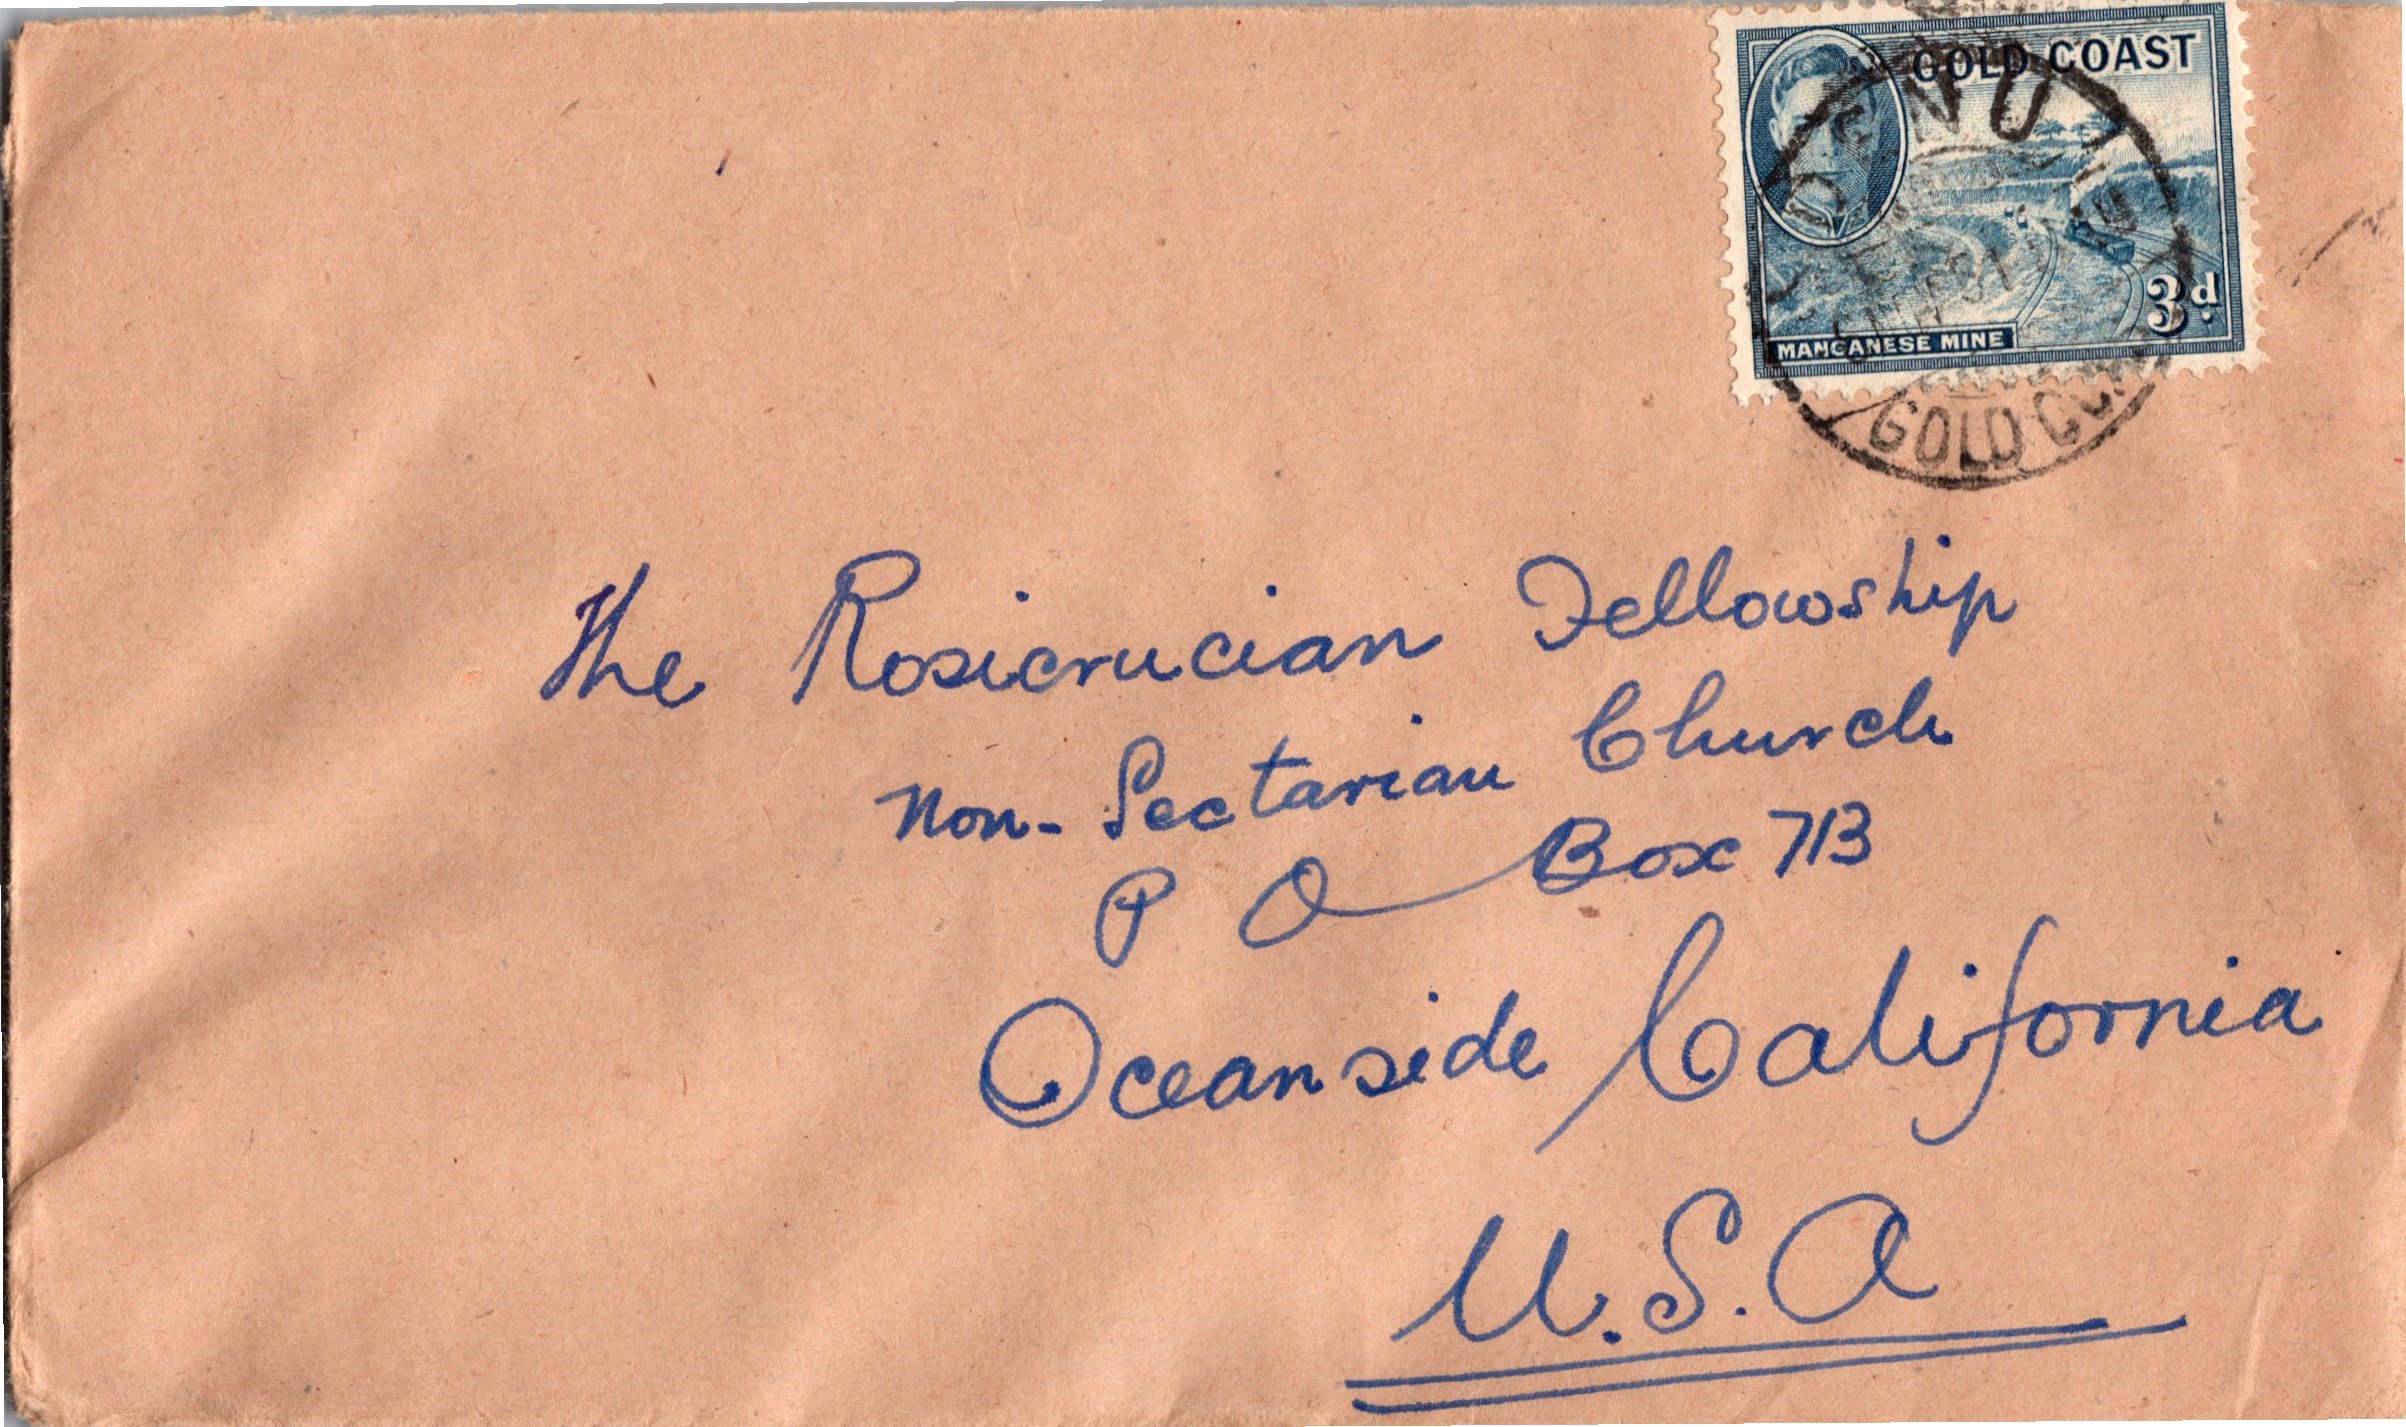 GOLD COAST
DENU
MANGANESE MINE
3d.
GOLD COAST
The Rosicrucian Fellowship
Non-Sectarian Church
P O Box 713
Oceanside California
U.S.A